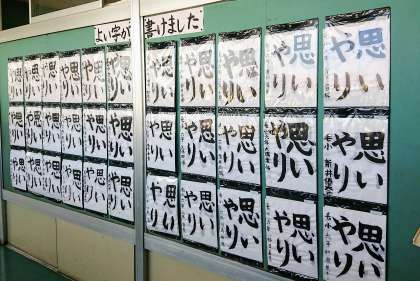 よい字が書けました
思いやり
思いやり
思いやり
思いやり
思いやり
思いやり
思いやり
思いやり
思いやり
思いやり
思いやり
思いやり
思いやり
思いやり
思いやり
思いやり
思いやり
思いやり
思いやり
思いやり
思いやり
思いやり
思いやり
思いやり
思いやり
思いやり
思いやり
思いやり
思いやり
思いやり
思いやり
思いやり
思いやり